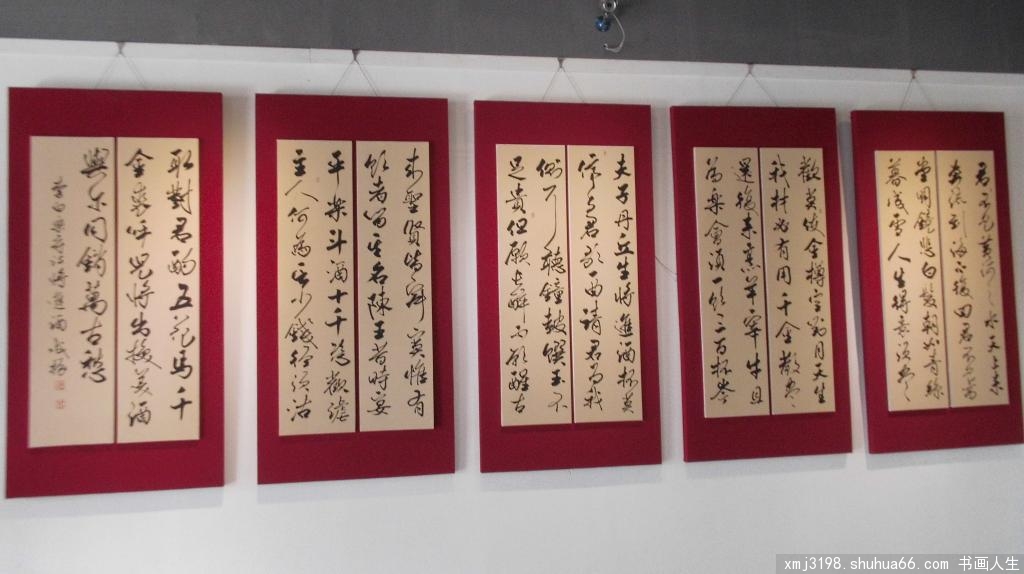 君不见黄河之水天上来
奔流到海不復回君不见高
堂明鏡悲白髮朝如青絲
暮成雪人生得意須尽
歡莫使金樽空对月天生
我材必有用千金散尽
還復来烹羊宰牛且
為樂會須一饮三百杯岑
夫子丹丘生将進酒杯莫
停与君歌一曲請君为我
侧耳聽鐘鼓馔玉不
足貴但願长醉不願醒古
来聖賢皆寂寞惟有
饮者留其名陳王昔時宴
平樂斗酒十千恣歡謔
主人何為言少錢径須沽
取對君酌五花馬千
金裘呼兒将出换美酒
與尔同銷萬古愁
李白樂府诗将進酒
xmj3198.shuhua66.com 书画人生